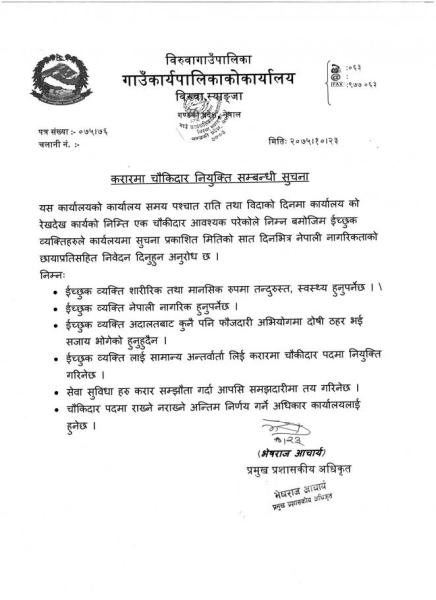 विरुवागाउँपालिका
गाउँकार्यपालिकाकोकार्यालय
बिरुवा,स्याङ्जा
गण्डकी प्रदेश, नेपाल
☎ :०६३
@ :
FAX :९७७ ०६३
पत्र संख्या :- ०७५।७६
चलानी नं. :-
मितिः २०७५।१०।२३
करारमा चौकिदार नियुक्ति सम्बन्धी सुचना
यस कार्यालयको कार्यालय समय पश्चात राति तथा विदाको दिनमा कार्यालय को
रेखदेख कार्यको निम्ति एक चौकीदार आवश्यक परेकोले निम्न बमोजिम ईच्छुक
व्यक्तिहरुले कार्यालयमा सुचना प्रकाशित मितिको सात दिनभित्र नेपाली नागरिकताको
छायाप्रतिसहित निवेदन दिनुहुन अनुरोध छ ।
निम्नः
• ईच्छुक व्यक्ति शारीरिक तथा मानसिक रुपमा तन्दुरुस्त, स्वस्थ्य हुनुपर्नेछ । \
• ईच्छुक व्यक्ति नेपाली नागरिक हुनुपर्नेछ ।
• ईच्छुक व्यक्ति अदालतबाट कुनै पनि फौजदारी अभियोगमा दोषी ठहर भई
सजाय भोगेको हुनुहुदैन ।
• ईच्छुक व्यक्ति लाई सामान्य अन्तर्वार्ता लिई करारमा चौकीदार पदमा नियुक्ति
गरिनेछ ।
• सेवा सुविधा हरु करार सम्झौता गर्दा आपसि समझदारीमा तय गरिनेछ ।
• चौकिदार पदमा राख्ने नराख्ने अन्तिम निर्णय गर्ने अधिकार कार्यालयलाई
हुनेछ ।
१०।२३
(भेषराज आचार्य)
प्रमुख प्रशासकीय अधिकृत
भेषराज आचार्य
प्रमुख प्रशासकीय अधिकृत